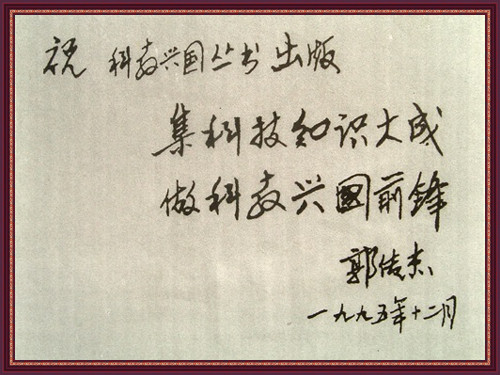 祝科教兴国丛书出版
集科技知识大成
做科教兴国前锋
郭传杰
一九九五年十二月